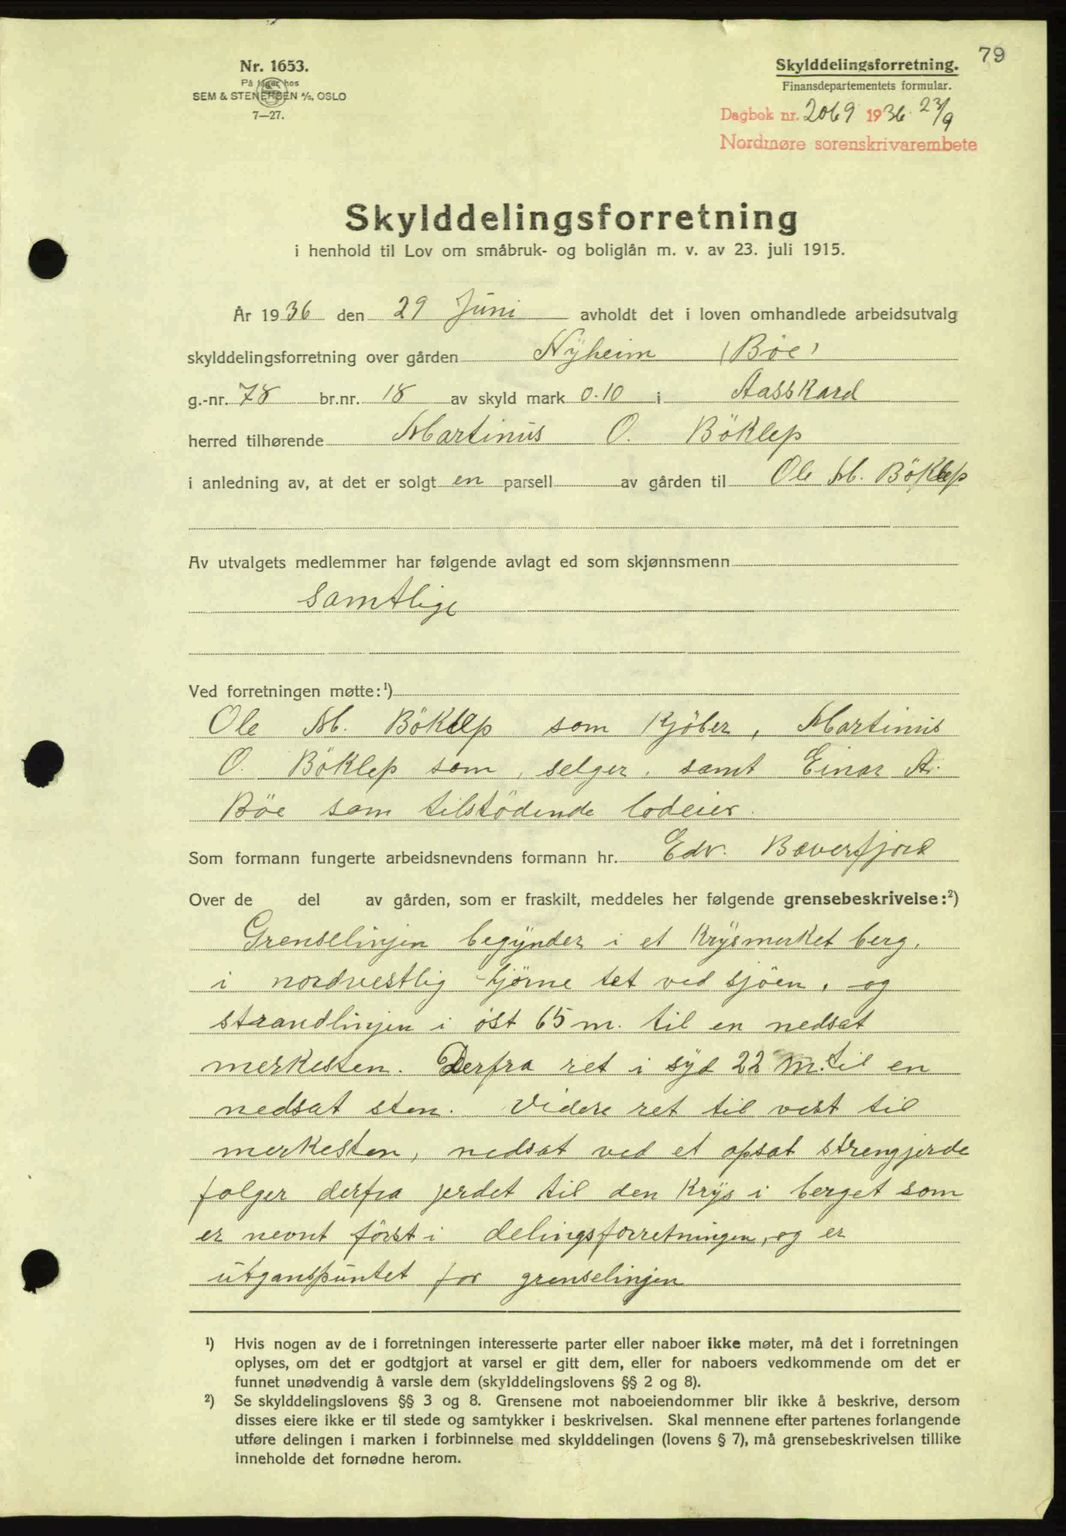 79
Nr. 1653.
På lager hos
SEM & STENERSEN A/S, OSLO
7—27.
Skylddelingsforretning.
Finansdepartementets formular.
Dagbok nr. 2069 1936 23/9
Nordmøre sorenskrivarembete
Skylddelingsforretning
i henhold til Lov om småbruk- og boliglån m. v. av 23. juli 1915.
År 1936 den 29 Juni avholdt det i loven omhandlede arbeidsutvalg
skylddelingsforretning over gården Nyheim (Bøe)
g.-nr. 78 br.nr. 18 av skyld mark 0.10 i Aasskard
herred tilhørende Martinus O. Böklep
i anledning av, at det er solgt en parsell av gården til Ole M. Böklep
Av utvalgets medlemmer har følgende avlagt ed som skjønnsmenn
samtlige
Ved forretningen møtte:¹)
Ole M. Böklep som kjöber, Martinus
O. Böklep som, selger, samt Einar A.
Böe som tilstödende lodeier.
Som formann fungerte arbeidsnevndens formann hr. Edv. Bæverfjord
Over de del av gården, som er fraskilt, meddeles her følgende grensebeskrivelse:²)
Grenselinjen begynder i et krysmerket berg,
i nordvestlig hjörne tet ved sjöen, og
strandlinjen i öst 65 m. til en nedsat
merkesten. Derfra ret i syd 22 m. til en
nedsat sten. Videre ret til vest til
merkesten, nedsat ved et opsat strengjerde
følger derfra jerdet til den krys i berget som
er nevnt først i delingsforretningen, og er
utganspuntet for grenselinjen
¹) Hvis nogen av de i forretningen interesserte parter eller naboer ikke møter, må det i forretningen
oplyses, om det er godtgjort at varsel er gitt dem, eller for naboers vedkommende om det er
funnet unødvendig å varsle dem (skylddelingslovens §§ 2 og 8).
²) Se skylddelingslovens §§ 3 og 8. Grensene mot naboeiendommer blir ikke å beskrive, dersom
disses eiere ikke er til stede og samtykker i beskrivelsen. Skal mennene efter partenes forlangende
utføre delingen i marken i forbinnelse med skylddelingen (lovens § 7), må grensebeskrivelsen tillike
inneholde det fornødne herom.